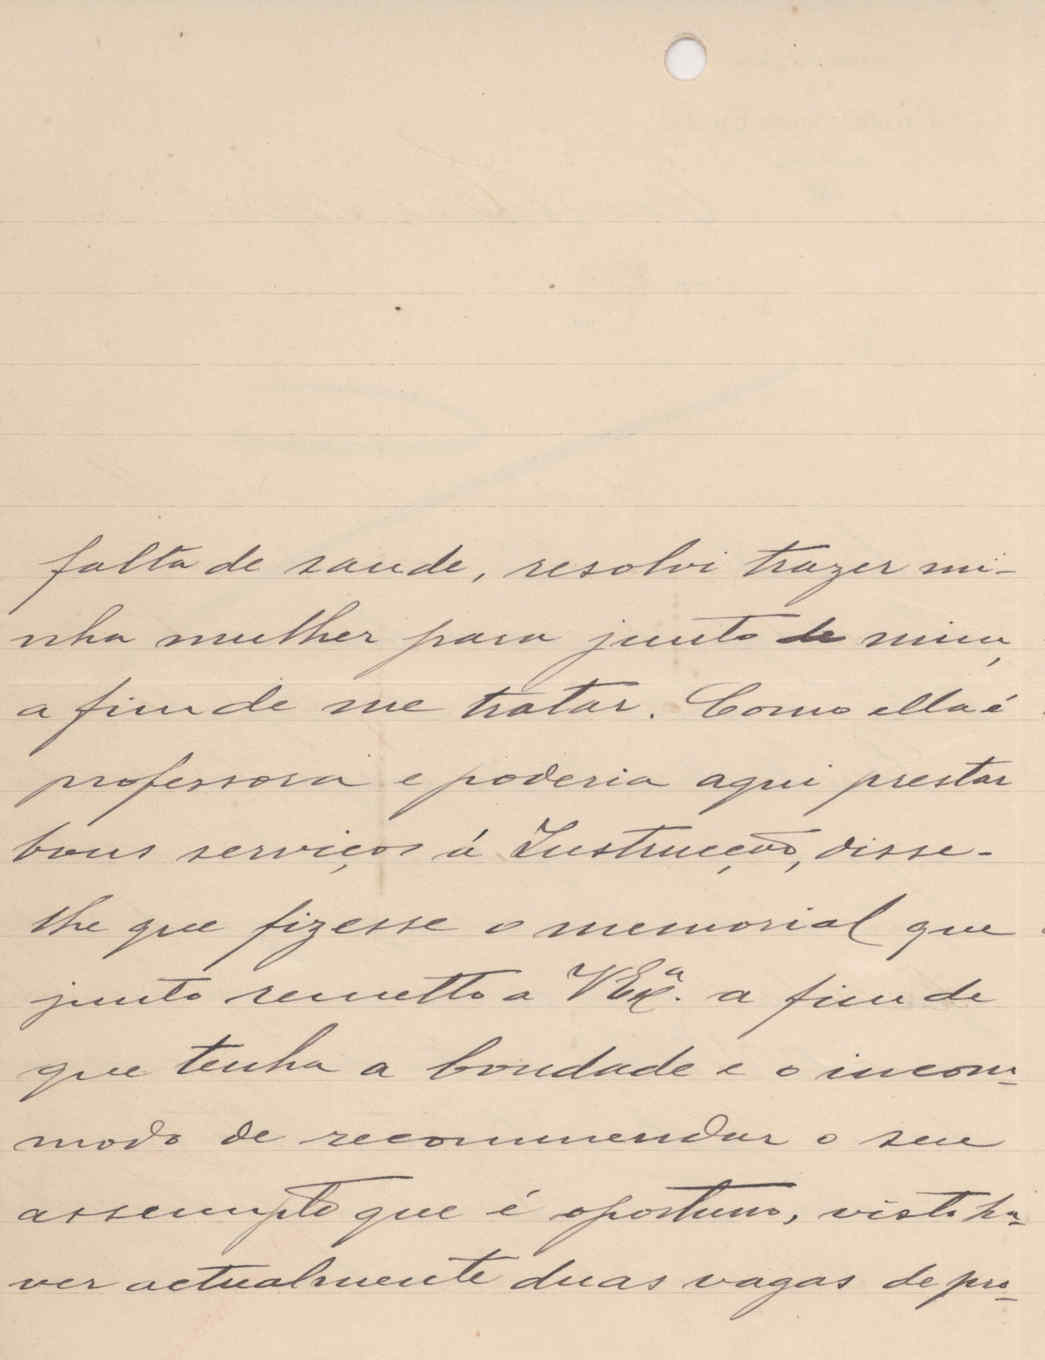 falta de saude, resolvi trazer mi-
nha mulher para junto de mim,
a fim de me tratar. Como ella é
professora e poderia aqui prestar
bons serviços á Instrucção, disse-
lhe que fizesse o memorial que
junto remetto a VExª. a fim de
que tenha a bondade e o incom-
modo de recommendar o seu
assumpto que é oportuno, visto ha-
ver actualmente duas vagas de pro-